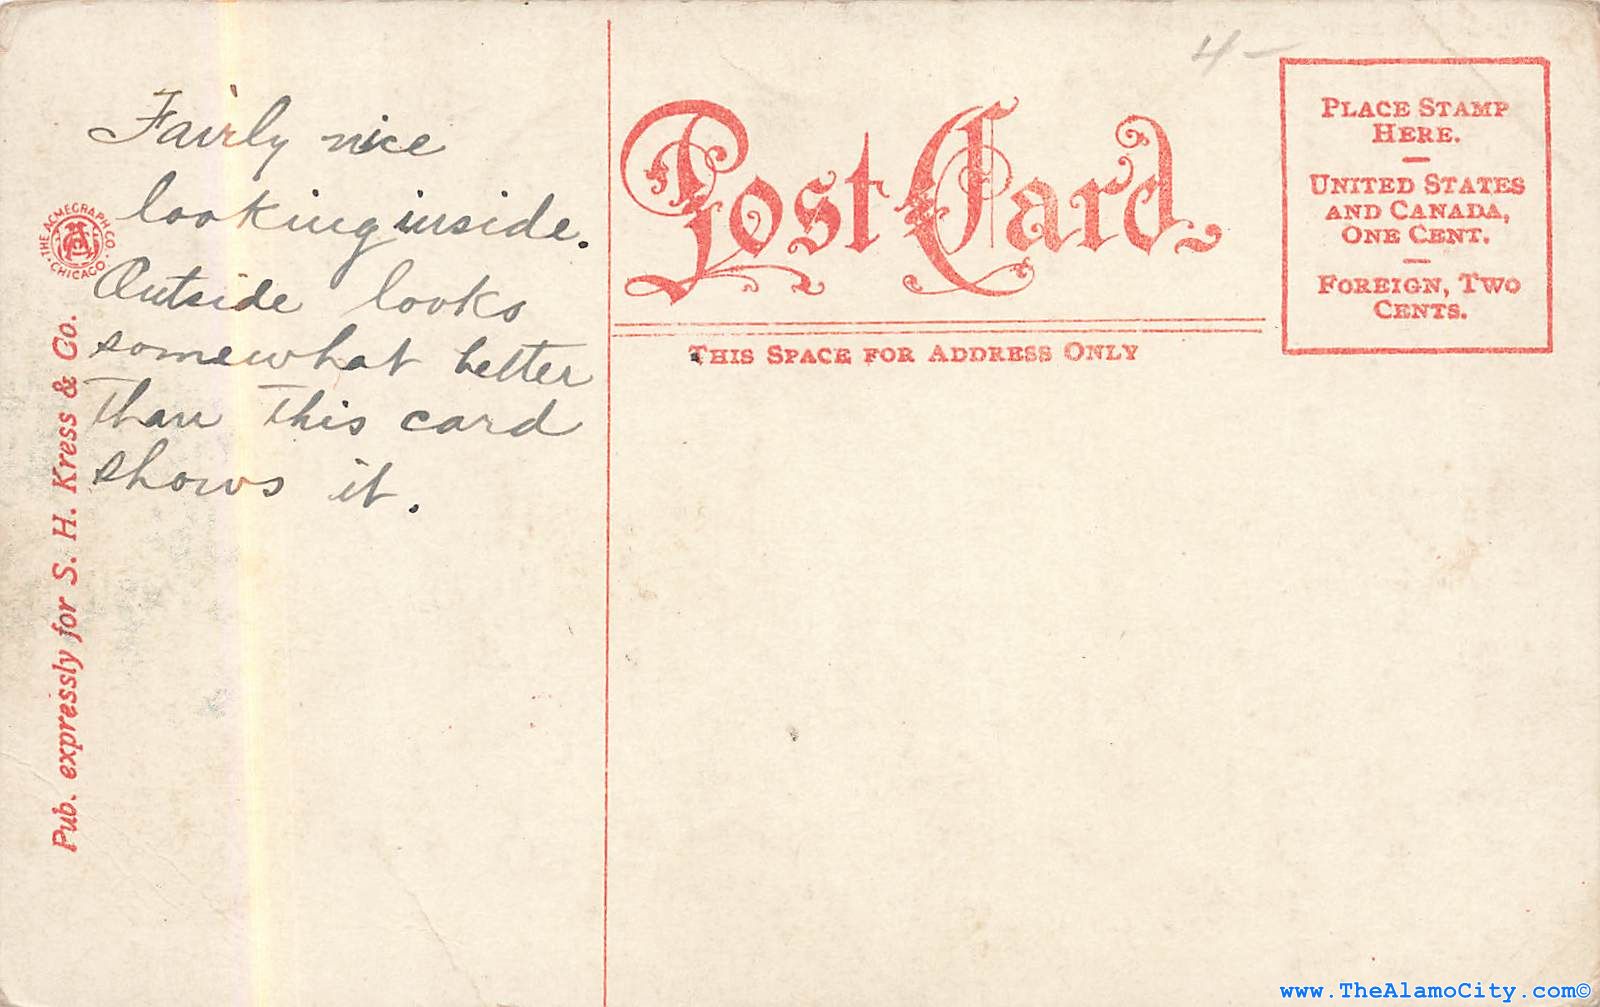 Fairly nice
looking inside.
Outside looks
somewhat better
than this card
shows it.
THE ACMEGRAPH CO.
CHICAGO
Pub. expressly for S. H. Kress & Co.
4-
Post Card
THIS SPACE FOR ADDRESS ONLY
PLACE STAMP
HERE.
UNITED STATES
AND CANADA,
ONE CENT.
FOREIGN, TWO
CENTS.
www.TheAlamoCity.com©